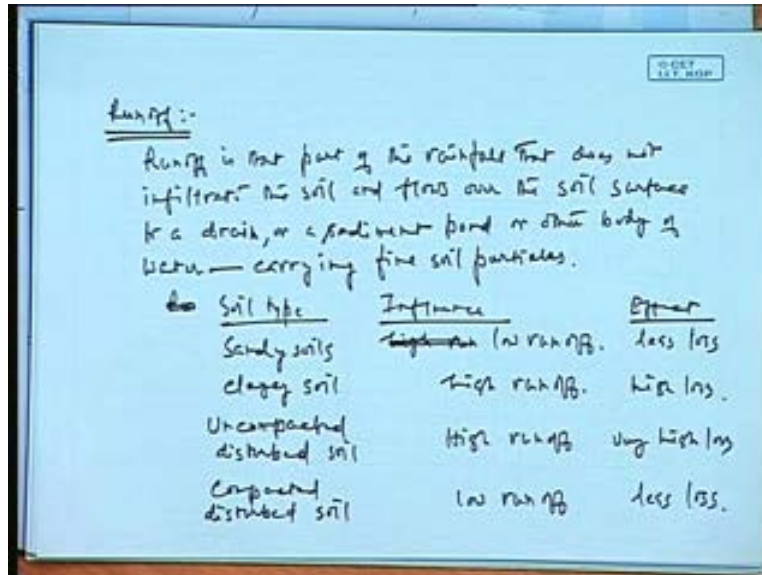 © CET
I.I.T. KGP
Runoff :-
Runoff is that part of the rainfall that does not
infiltrate the soil and flows over the soil surface
to a drain, or a sediment pond or other body of
water — carrying fine soil particles.
Soil type Influence Effect
Sandy soils low runoff. less loss
clayey soil high runoff. high loss.
Uncompacted
disturbed soil High runoff very high loss
Compacted
disturbed soil low runoff less loss.